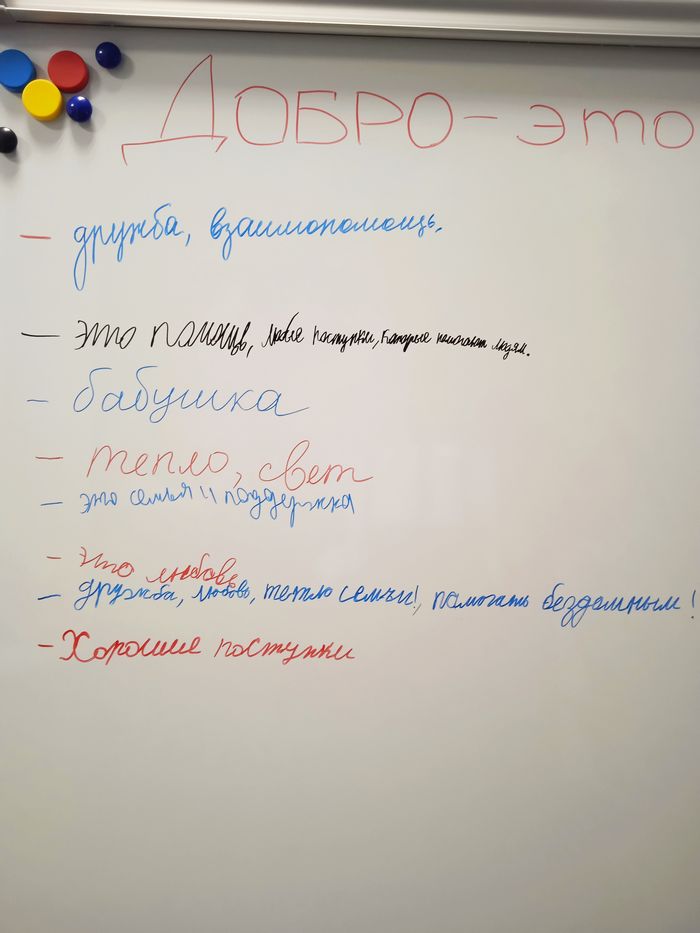 ДОБРО - это
- дружба, взаимопомощь.
- это помощь, любые поступки, которые помогают людям.
- бабушка
- тепло, свет
- это семья и поддержка
- это любовь
- дружба, любовь, тепло семьи!, помогать бездомным!
- Хорошие поступки